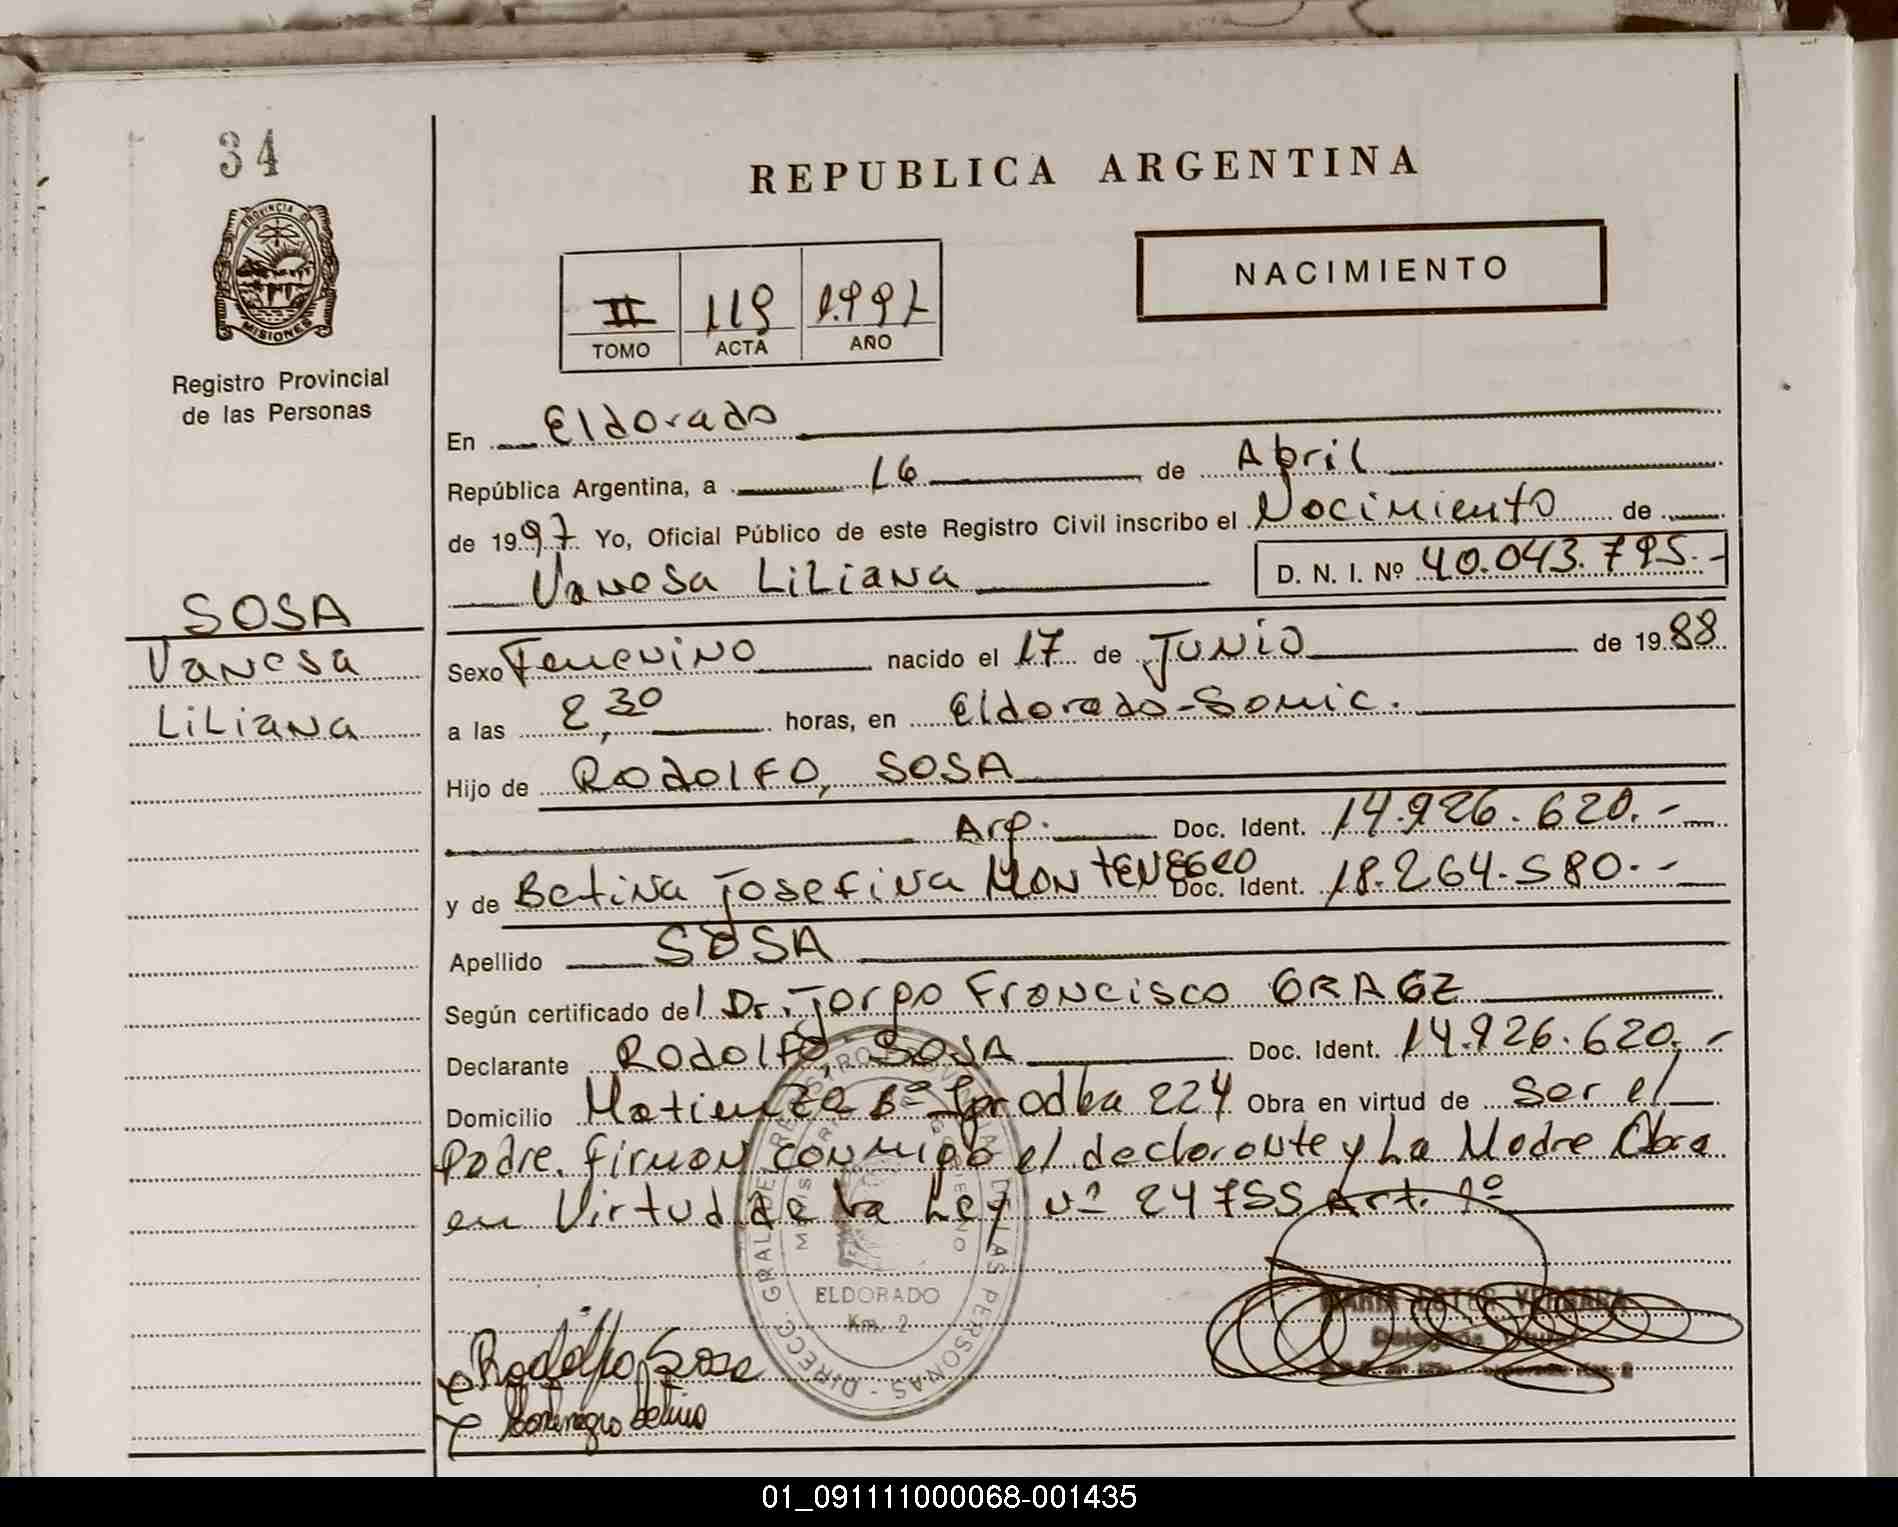 34
REPUBLICA ARGENTINA
PROVINCIA DE
MISIONES
NACIMIENTO
II 119 1.997
TOMO ACTA AÑO
Registro Provincial
de las Personas
En Eldorado
República Argentina, a 16 de Abril
de 1997 Yo, Oficial Público de este Registro Civil inscribo el Nacimiento de
Vanesa Liliana D. N. I. Nº 40.043.795.-
SOSA
Vanesa
Liliana
Sexo Femenino nacido el 17 de Junio de 1988
a las 2,30 horas, en Eldorado-Samic.
Hijo de Rodolfo, SOSA
Arg. Doc. Ident. 14.926.620.-
y de Betina Josefina MONTENEGRO Doc. Ident. 18.264.580.-
Apellido SOSA
Según certificado del Dr. Jorge Francisco
Declarante Rodolfo, SOSA Doc. Ident. 14.926.620.-
Domicilio Matienzo Bº 224 Obra en virtud de ser el
Padre. Firman conmigo el declarante y La Madre Obra
en Virtud de la Ley nº 24755 Art. 1º
DIRECC. GRAL. DE REGISTRO PROVINCIAL DE LAS PERSONAS
GOBIERNO
MISIONES
ELDORADO
Km. 2
MARIA ESTER VERGARA
Delegada Titular
Rodolfo Sosa
Montenegro Betina
01_091111000068-001435